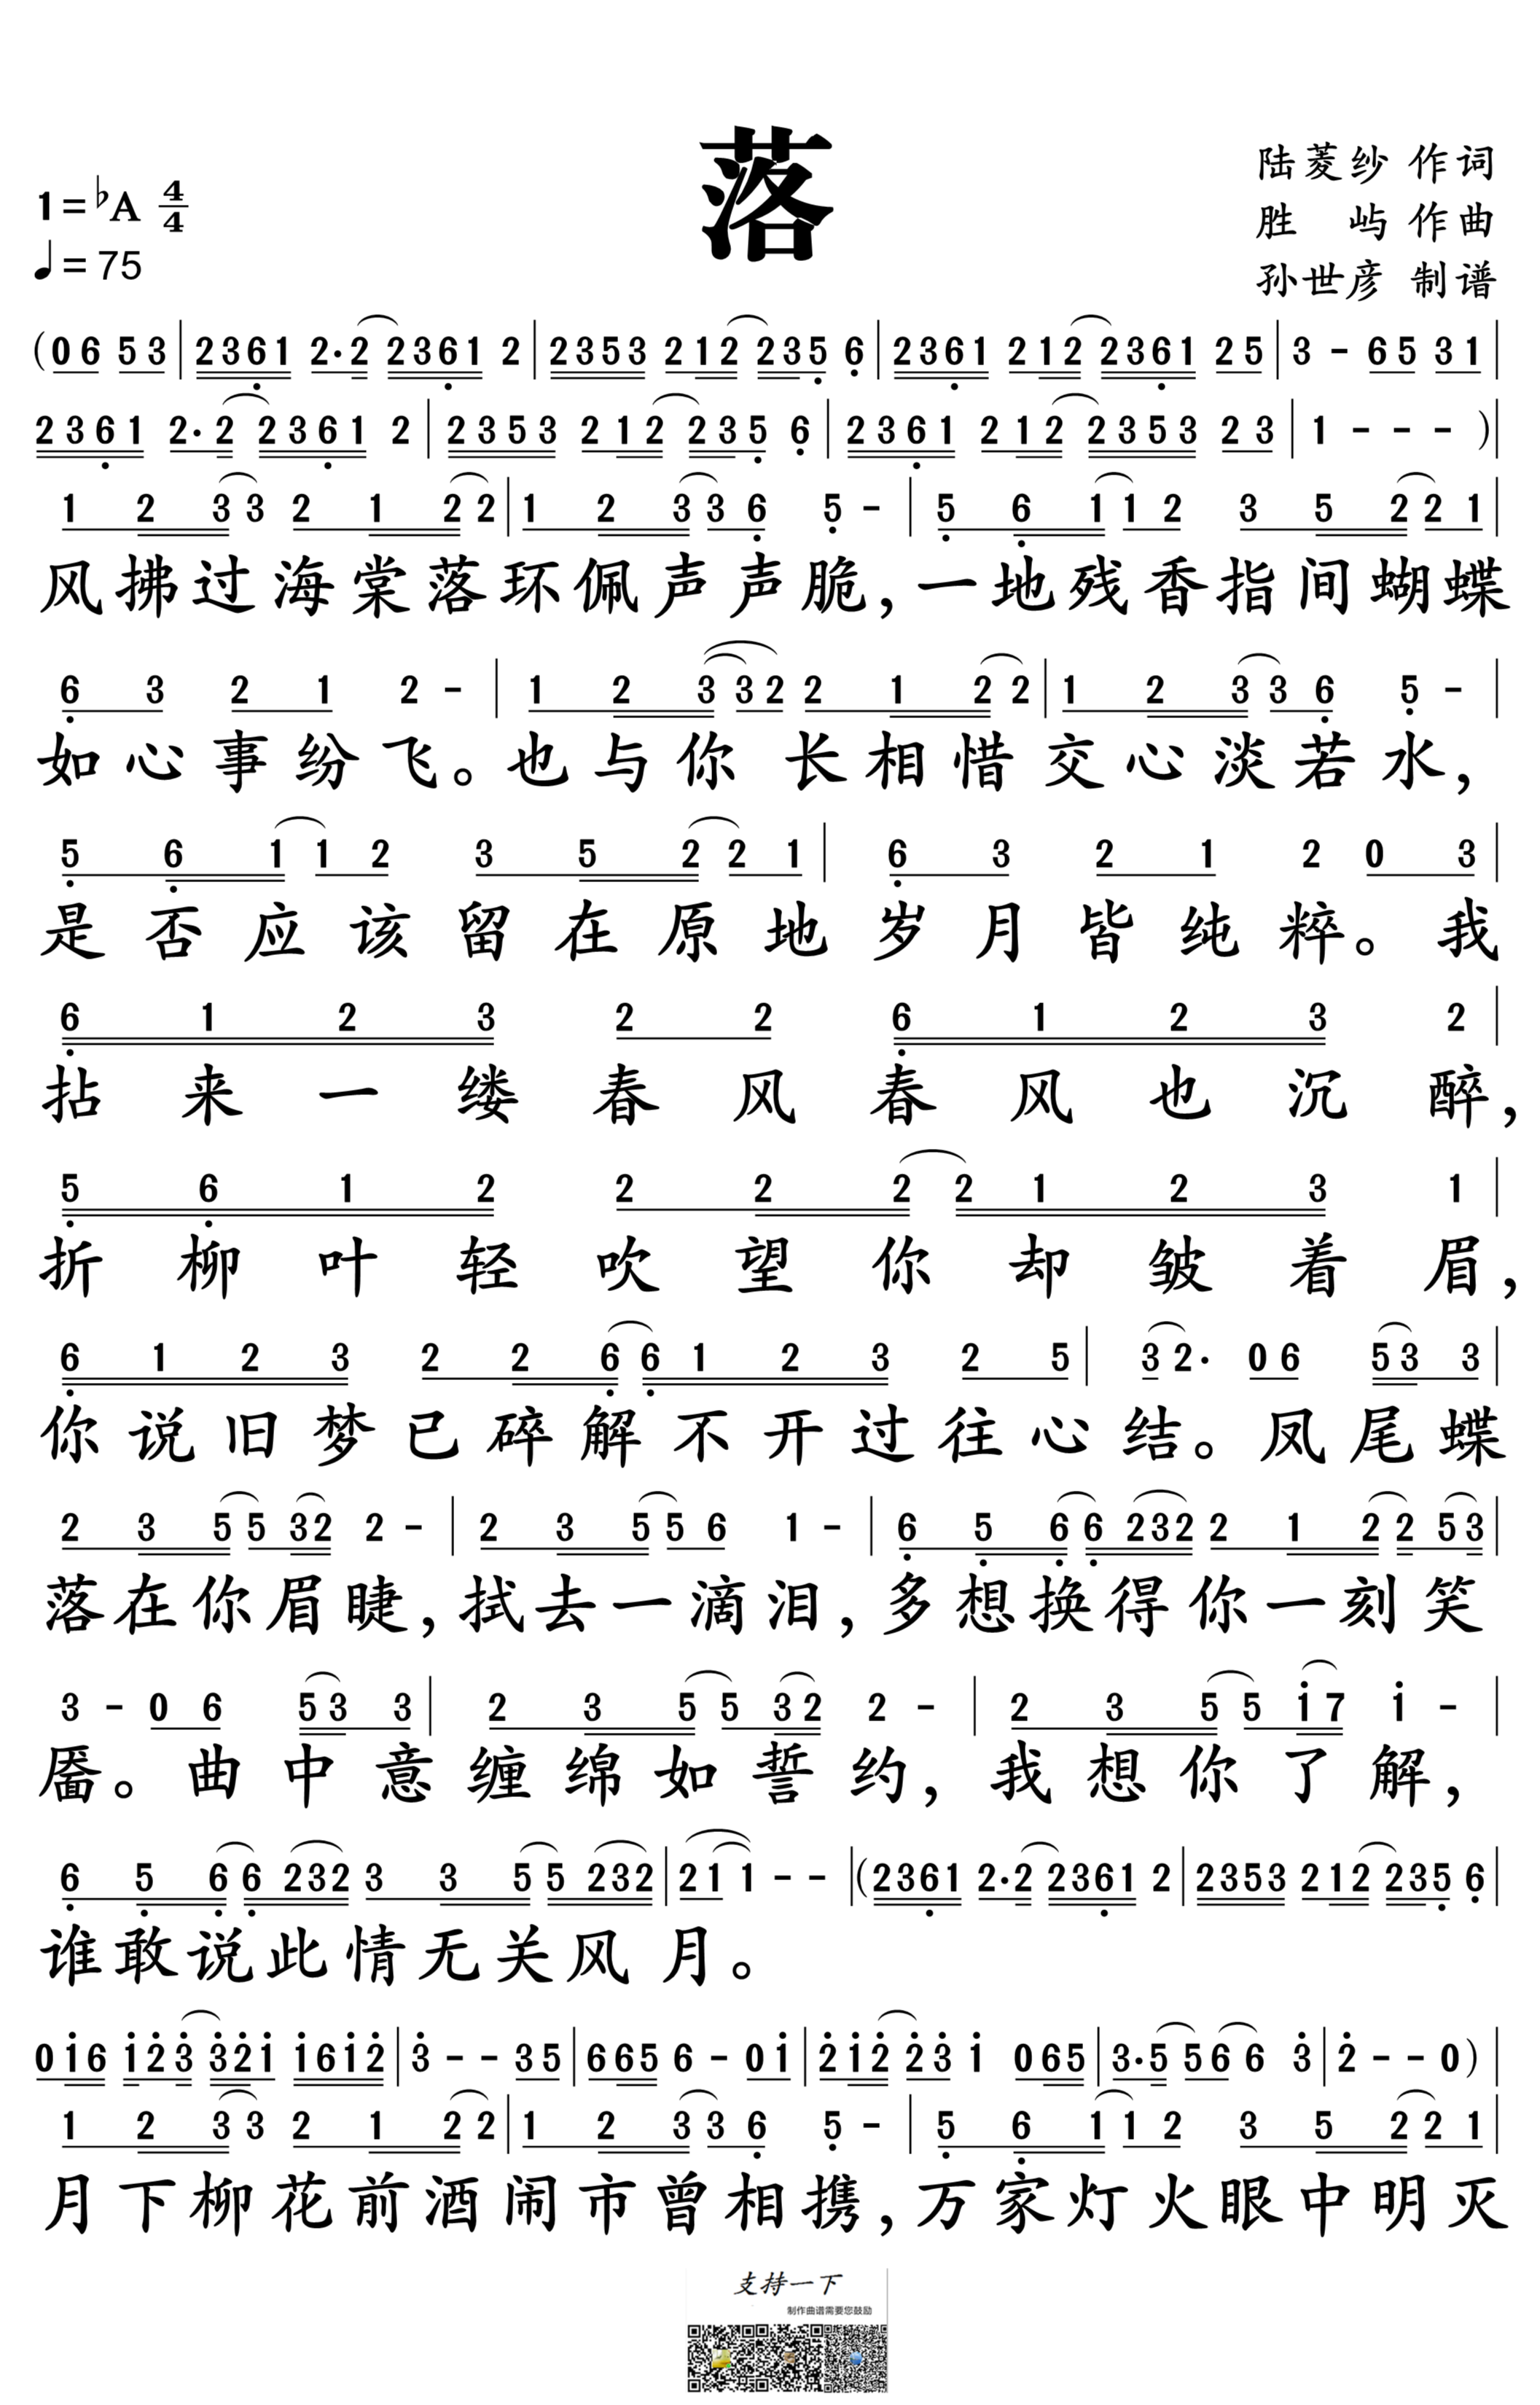 落
1=♭A 4/4
♩=75
陆菱纱 作词
胜 屿 作曲
孙世彦 制谱
(06 53|2361 2·2 2361 2|2353 212 235 6|2361 212 2361 25|3 - 65 31|
2361 2·2 2361 2|2353 212 235 6|2361 212 2353 23|1 - - - )|
1 2 33 2 1 22|1 2 33 6 5 -|5 6 11 2 3 5 22 1|
风拂过海棠落环佩声声脆,一地残香指间蝴蝶
6 3 2 1 2 -|1 2 332 2 1 2 2|1 2 33 6 5 -|
如心事纷飞。也与你长相惜交心淡若水,
5 6 11 2 3 5 22 1|6 3 2 1 2 0 3|
是否应该留在原地岁月皆纯粹。我
6 1 2 3 2 2 6 1 2 3 2|
拈来一缕春风春风也沉醉,
5 6 1 2 2 2 2 2 1 2 3 1|
折柳叶轻吹望你却皱着眉,
6 1 2 3 2 2 66 1 2 3 2 5|32· 06 53 3|
你说旧梦已碎解不开过往心结。凤尾蝶
2 3 55 32 2 -|2 3 55 6 1 -|6 5 66 232 2 1 22 53|
落在你眉睫,拭去一滴泪,多想换得你一刻笑
3 - 0 6 53 3|2 3 55 32 2 -|2 3 55 i7 i -|
靥。曲中意缠绵如誓约,我想你了解,
6 5 66 232 3 3 55 232|21 1 - -|(2361 2·2 2361 2|2353 212 235 6|
谁敢说此情无关风月。
0i6 i23 32i i6i2|3 - - 35|665 6 - 0i|2i2 23 i 065|3·5 56 6 3|2 - - 0)|
1 2 33 2 1 22|1 2 33 6 5 -|5 6 11 2 3 5 22 1|
月下柳花前酒闹市曾相携,万家灯火眼中明灭
支持一下
制作曲谱需要您鼓励